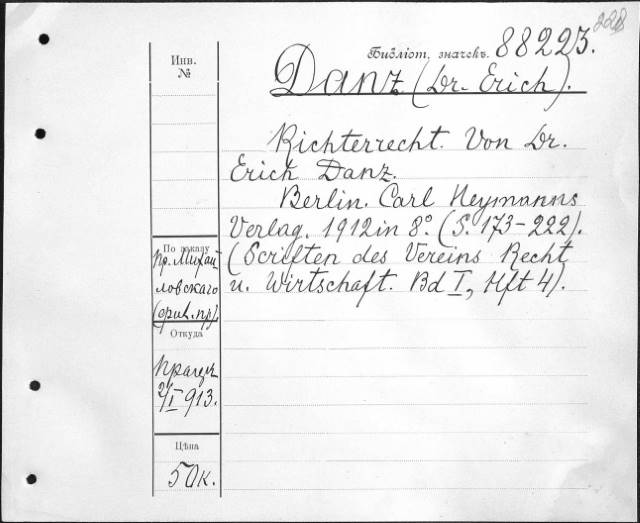 228
Библіот. значекъ. 88223.
Danz (Dr. Erich).
Инв.
№
Richterrecht. Von Dr.
Erich Danz.
Berlin. Carl Heymanns
Verlag. 1912 in 8º. (S. 173-222).
(Scriften des Vereins Recht
u. Wirtschaft. Bd I, Hft 4).
По заказу
пр. Михай
ловскаго
Откуда
2/I 913.
Цѣна
50к.